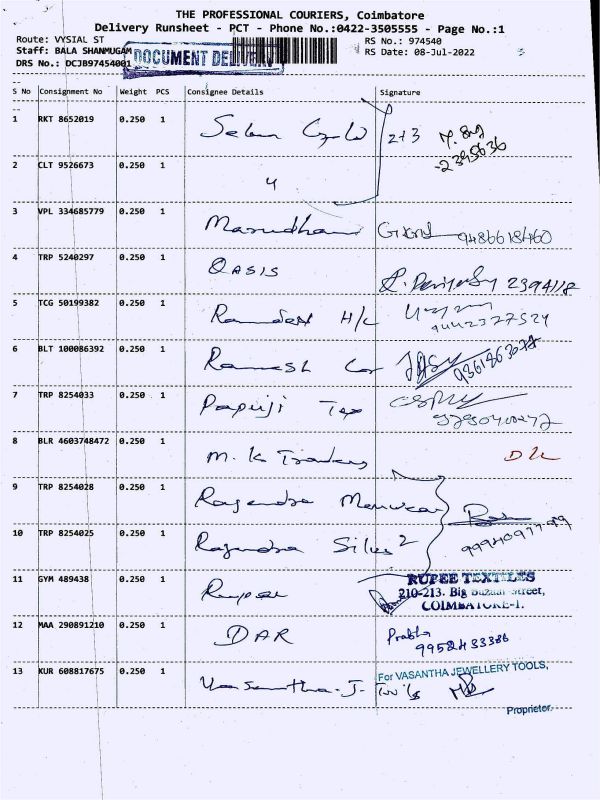 THE PROFESSIONAL COURIERS, Coimbatore
Delivery Runsheet - PCT - Phone No.:0422-3505555 - Page No.:1
Route: VYSIAL ST
RS No.: 974540
Staff: BALA SHANMUGAM
RS Date: 08-Jul-2022
DRS No.: DCJB97454001
DOCUMENT DELIVERY
S No Consignment No Weight PCS Consignee Details Signature
1 RKT 8652019 0.250 1 Salem 2+3
2395636
2 CLT 9526673 0.250 1 4
3 VPL 334685779 0.250 1 9486618460
4 TRP 5240297 0.250 1 OASIS 2394118
5 TCG 50199382 0.250 1 H/C
9442377524
6 BLT 100086392 0.250 1 Ramesh
7 TRP 8254033 0.250 1 Papuji Tex
8 BLR 4603748472 0.250 1 M. K Traders
9 TRP 8254028 0.250 1 Rajendra Menwear
10 TRP 8254025 0.250 1 Rajendra Silks 2
11 GYM 489438 0.250 1 Rupee
RUPEE TEXTILES
210-213, Big Bazaar Street,
COIMBATORE-1.
12 MAA 290891210 0.250 1 DAR Prabhu
9952433386
13 KUR 608817675 0.250 1 Vasantha-J-
For VASANTHA JEWELLERY TOOLS,
Proprietor.